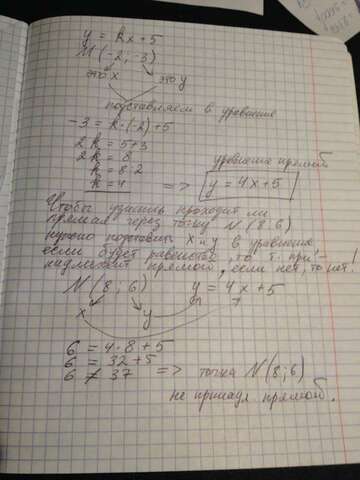 y = kx + 5
M (-2; -3)
это x это y
подставляем в уравнение
-3 = k·(-2) + 5
2k = 5+3
2k = 8
k = 8:2
k = 4
уравнение прямой
=> y = 4x+5
Чтобы узнать проходит ли
прямая через точку N (8; 6)
нужно подставить x и y в уравнение
если будет равенство, то т. при-
надлежит прямой, если нет, то нет. !
N (8; 6) y = 4x + 5
x y
6 = 4·8 + 5
6 = 32 + 5
6 ≠ 37 => точка N (8; 6)
не принадл прямой.